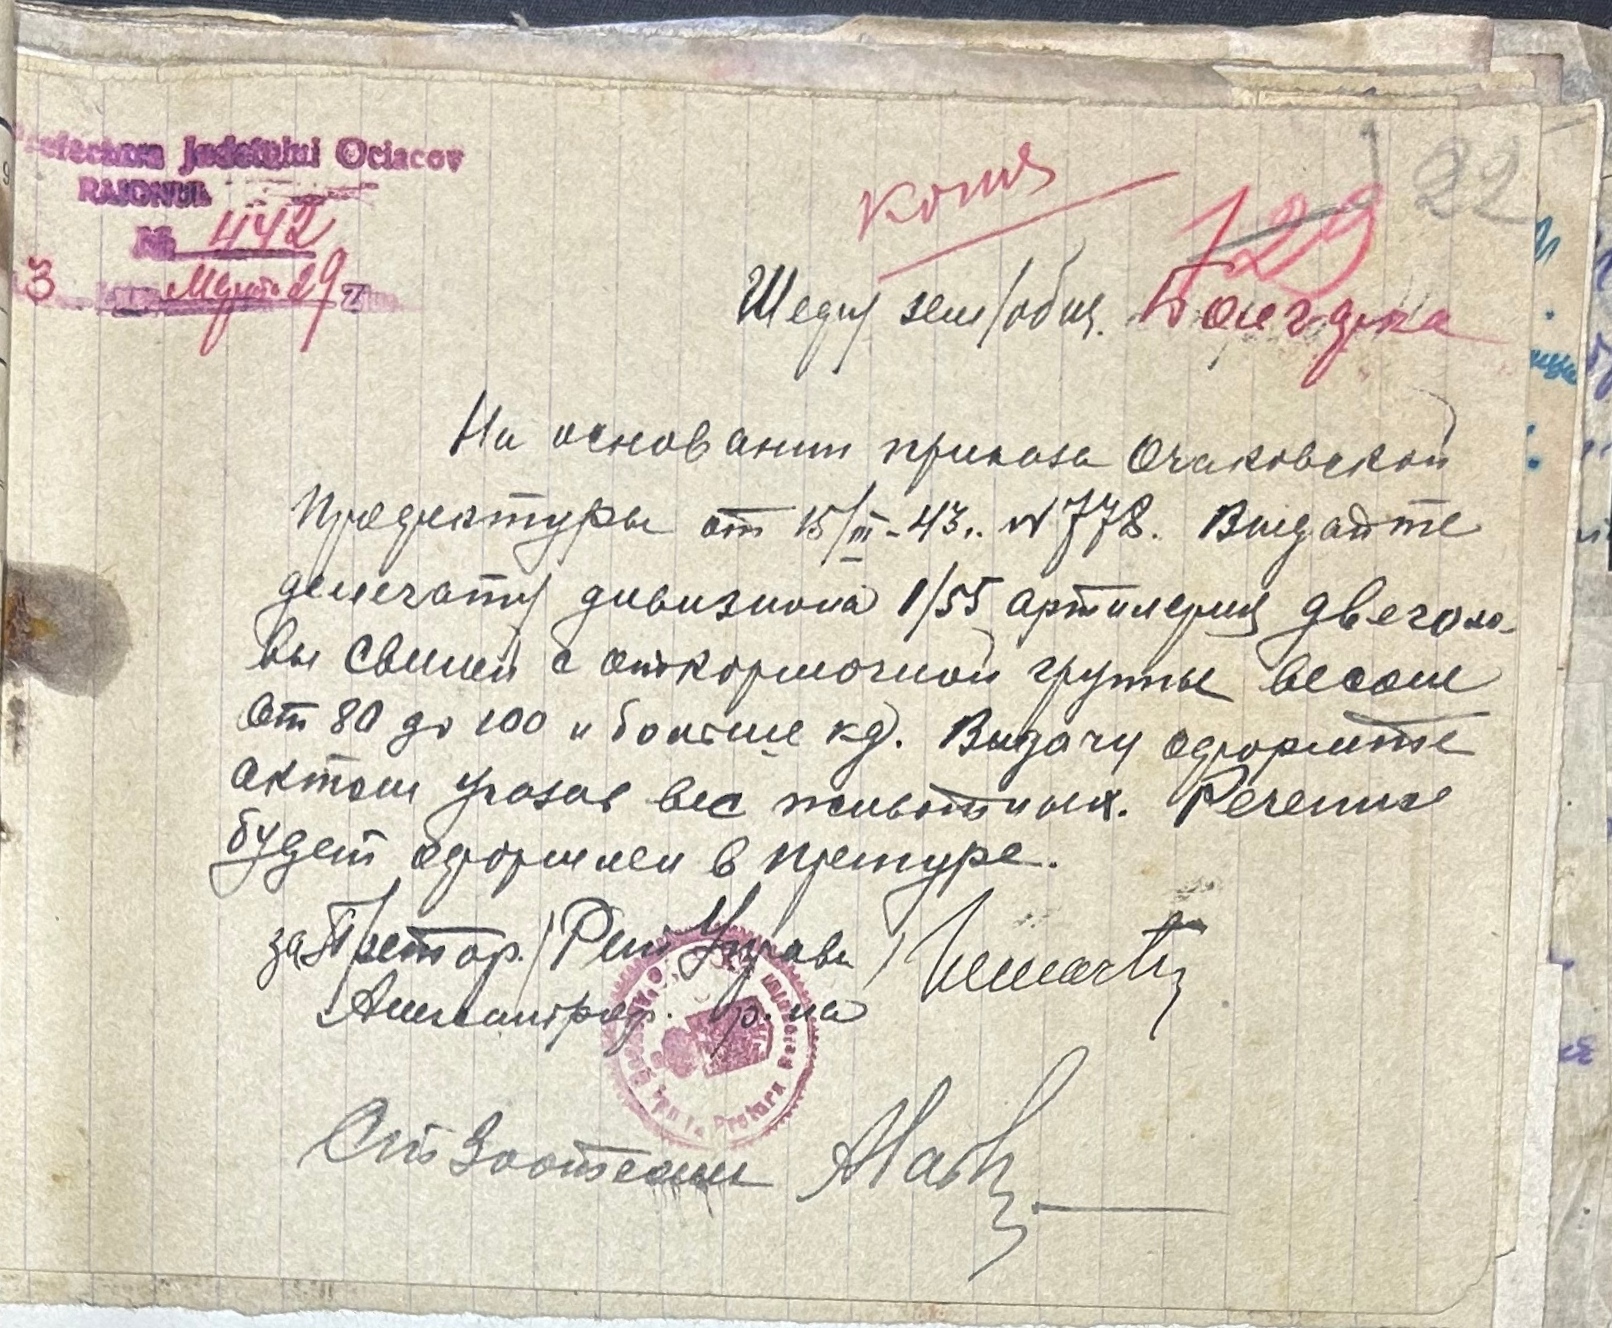 Prefectura Județului Ociacov
RAIONUL
№ 442
3 Марта 29 г
копия
129
22
Шефу зем/общ.
На основании приказа Очаковской
Префектуры от 15/III-43г. № 778. Выдайте
делегату дивизиона 1/55 артилерии две голо-
вы свиней с откормочной группы весом
от 80 до 100 и больше кг. Выдачу оформите
актом указав вес животных. Речение
будет оформлен в претуре.
за Претор. / Рай Управы /
Александров. р-на
Pretura
Ст Зоотехник